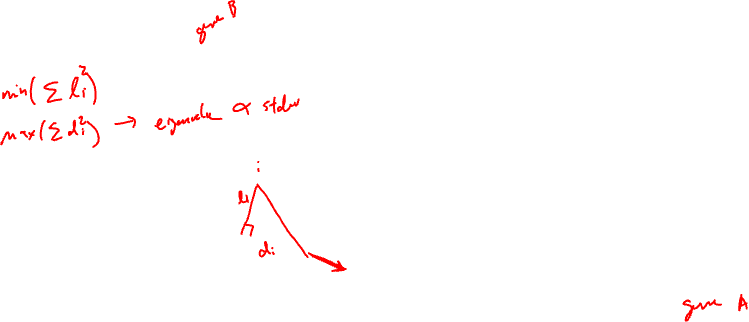 gene B
min(Σ li²)
max(Σdi²) → eigenvalue ∝ stdev
i
li
di
gene A